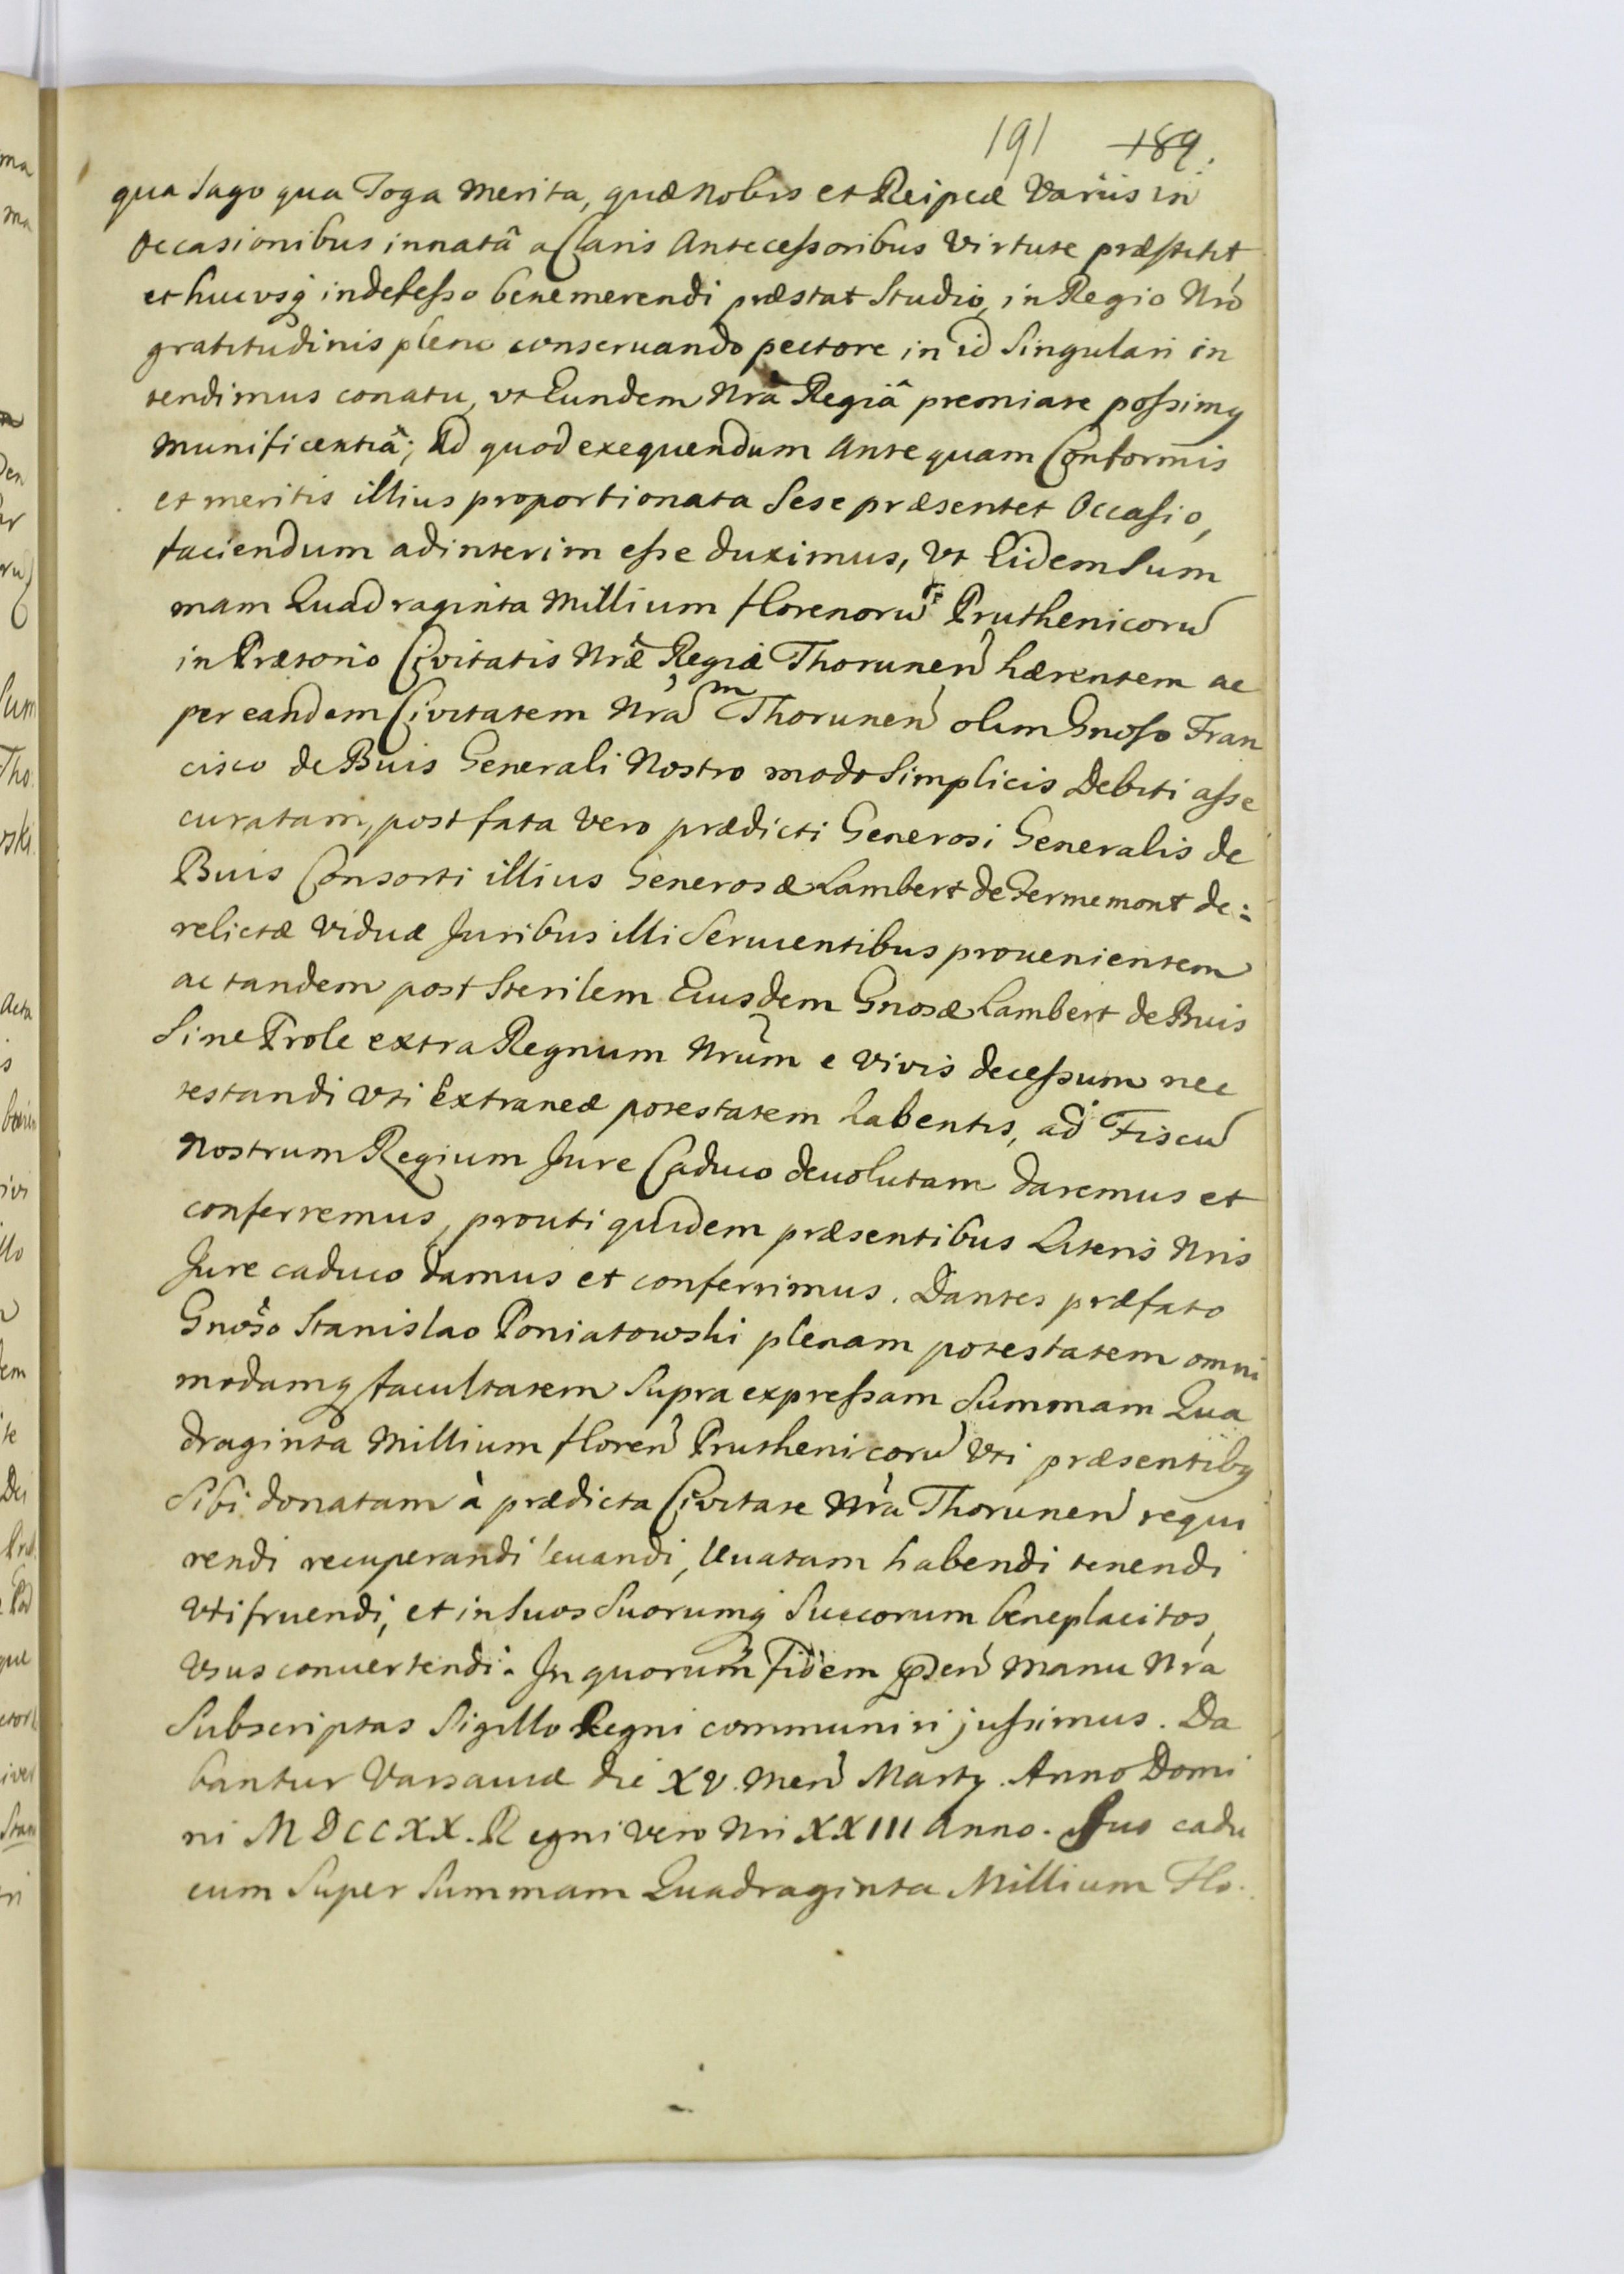 191 189.
qua Sago qua Toga merita, quæ nobis et Reipcæ Variis in
Occasionibus innatâ a Claris Antecessoribus Virtute præstitit
et hucusq indefesso benemerendi præstat Studio, in Regio Nrô
gratitudinis pleno conseruando pectore in id Singulari in
tendimus conatu, vt Eundem Nrâ Regiâ premiare possimq
Munificentiâ; Ad quod exequendum Antequam Conformis
et meritis illius proportionata Sese præsentet Occasio,
faciendum adinterim esse duximus, Vt Eidem Sum
mam Quadraginta Millium florenorũ Pruthenicorũ
in Prætorio Civitatis Nræ Regiæ Thorunen̄ hærentem ac
per eandem Civitatem Nram Thorunen̄ olim Gnoso Fran
cisco de Buis Generali Nostro modo Simplicis Debiti asse
curatam, post fata vero prædicti Generosi Generalis de
Buis Consorti illius Generosæ Lambert de Fermemont de:
relictæ Viduæ Juribus illi Seruientibus prouenientem
ac tandem post Sterilem Eiusdem Gnosæ Lambert de Buis
Sine Prole extra Regnum Nrum e vivis decessum nec
testandi Vti Extraneæ potestatem habentis, ad Fiscũ
Nostrum Regium Jure Caduco deuolutam daremus et
conferremus, prouti quidem præsentibus Literis Nris
Jure caduco damus et conferimus. Dantes præfato
Gnoso Stanislao Poniatowski plenam potestatem omni
modamq facultatem Supra expressam Summam Qua
draginta Millium floren̄ Pruthenicorũ Vti præsentibq
Sibi donatam à prædicta Civitate Nra Thorunen̄ requi
rendi recuperandi leuandi, leuatam habendi tenendi
Vtifruendi, et in Suos Suorumq Succorum beneplacitos,
Vsus conuertendi. In quorum Fidem pñsen̄ Manu Nra
Subscriptas Sigillo Regni communiri jussimus. Da
bantur Varsauiæ die XV. Men̄ Martÿ. Anno Domi
ni MDCCXX. Regni Vero Nri XXIII Anno. Jus cadu
cum Super Summam Quadraginta Millium Flo.